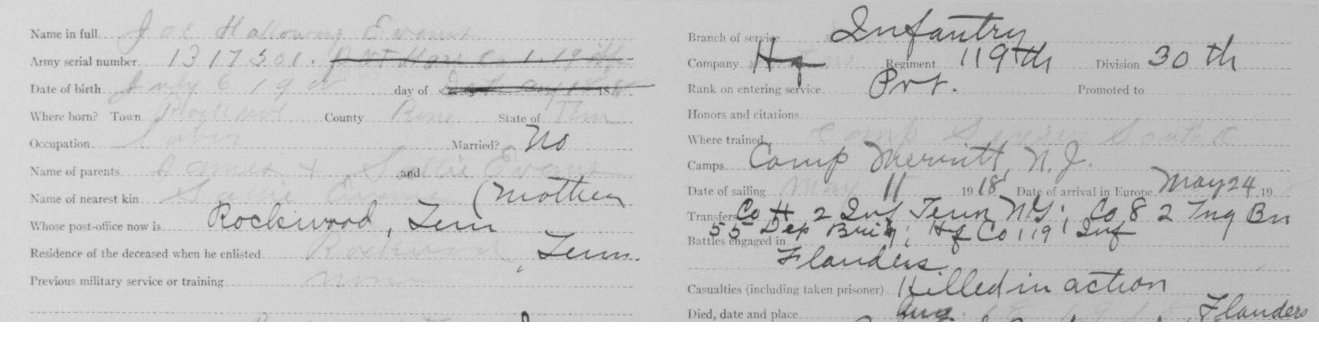 Name in full Joe Halloway Evans
Army serial number 1317301.
Date of birth July 6 19 day of 18
Where born? Town Rockwood County Roane State of Tenn
Occupation Labor Married? No
Name of parents James & and Sallie Evans
Name of nearest kin Sallie Evans (Mother
Whose post-office now is Rockwood, Tenn
Residence of the deceased when he enlisted Rockwood, Tenn.
Previous military service or training none
Branch of service Infantry
Company Hq Regiment 119th Division 30th
Rank on entering service Pvt. Promoted to
Honors and citations
Where trained Camp Sevier South
Camps Camp Merritt, N.J.
Date of sailing May 11 1918 Date of arrival in Europe May 24 19
Transfer Co H 2 Inf Tenn NG; Co 8 2 Tng Bn
55 Dep Brig; Hq Co 119 Inf
Battles engaged in
Flanders
Casualties (including taken prisoner) Killed in action
Died, date and place Aug. Flanders